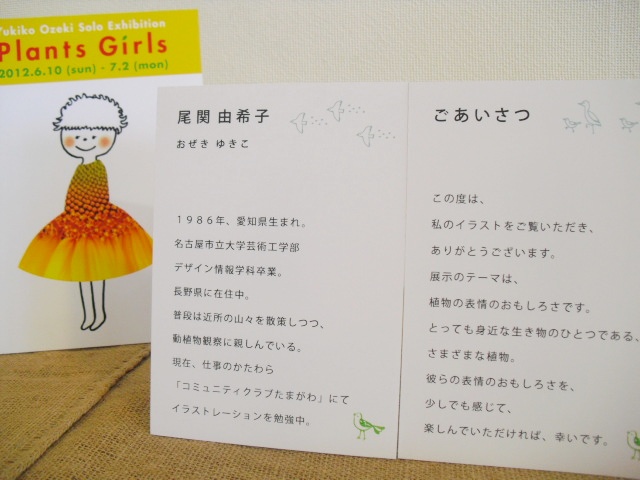 Yukiko Ozeki Solo Exhibition
Plants Girls
2012.6.10 (sun) - 7.2 (mon)
尾関 由希子
おぜき ゆきこ
1986年、愛知県生まれ。
名古屋市立大学芸術工学部
デザイン情報学科卒業。
長野県に在住中。
普段は近所の山々を散策しつつ、
動植物観察に親しんでいる。
現在、仕事のかたわら
「コミュニティクラブたまがわ」にて
イラストレーションを勉強中。
ごあいさつ
この度は、
私のイラストをご覧いただき、
ありがとうございます。
展示のテーマは、
植物の表情のおもしろさです。
とっても身近な生き物のひとつである、
さまざまな植物。
彼らの表情のおもしろさを、
少しでも感じて、
楽しんでいただければ、幸いです。